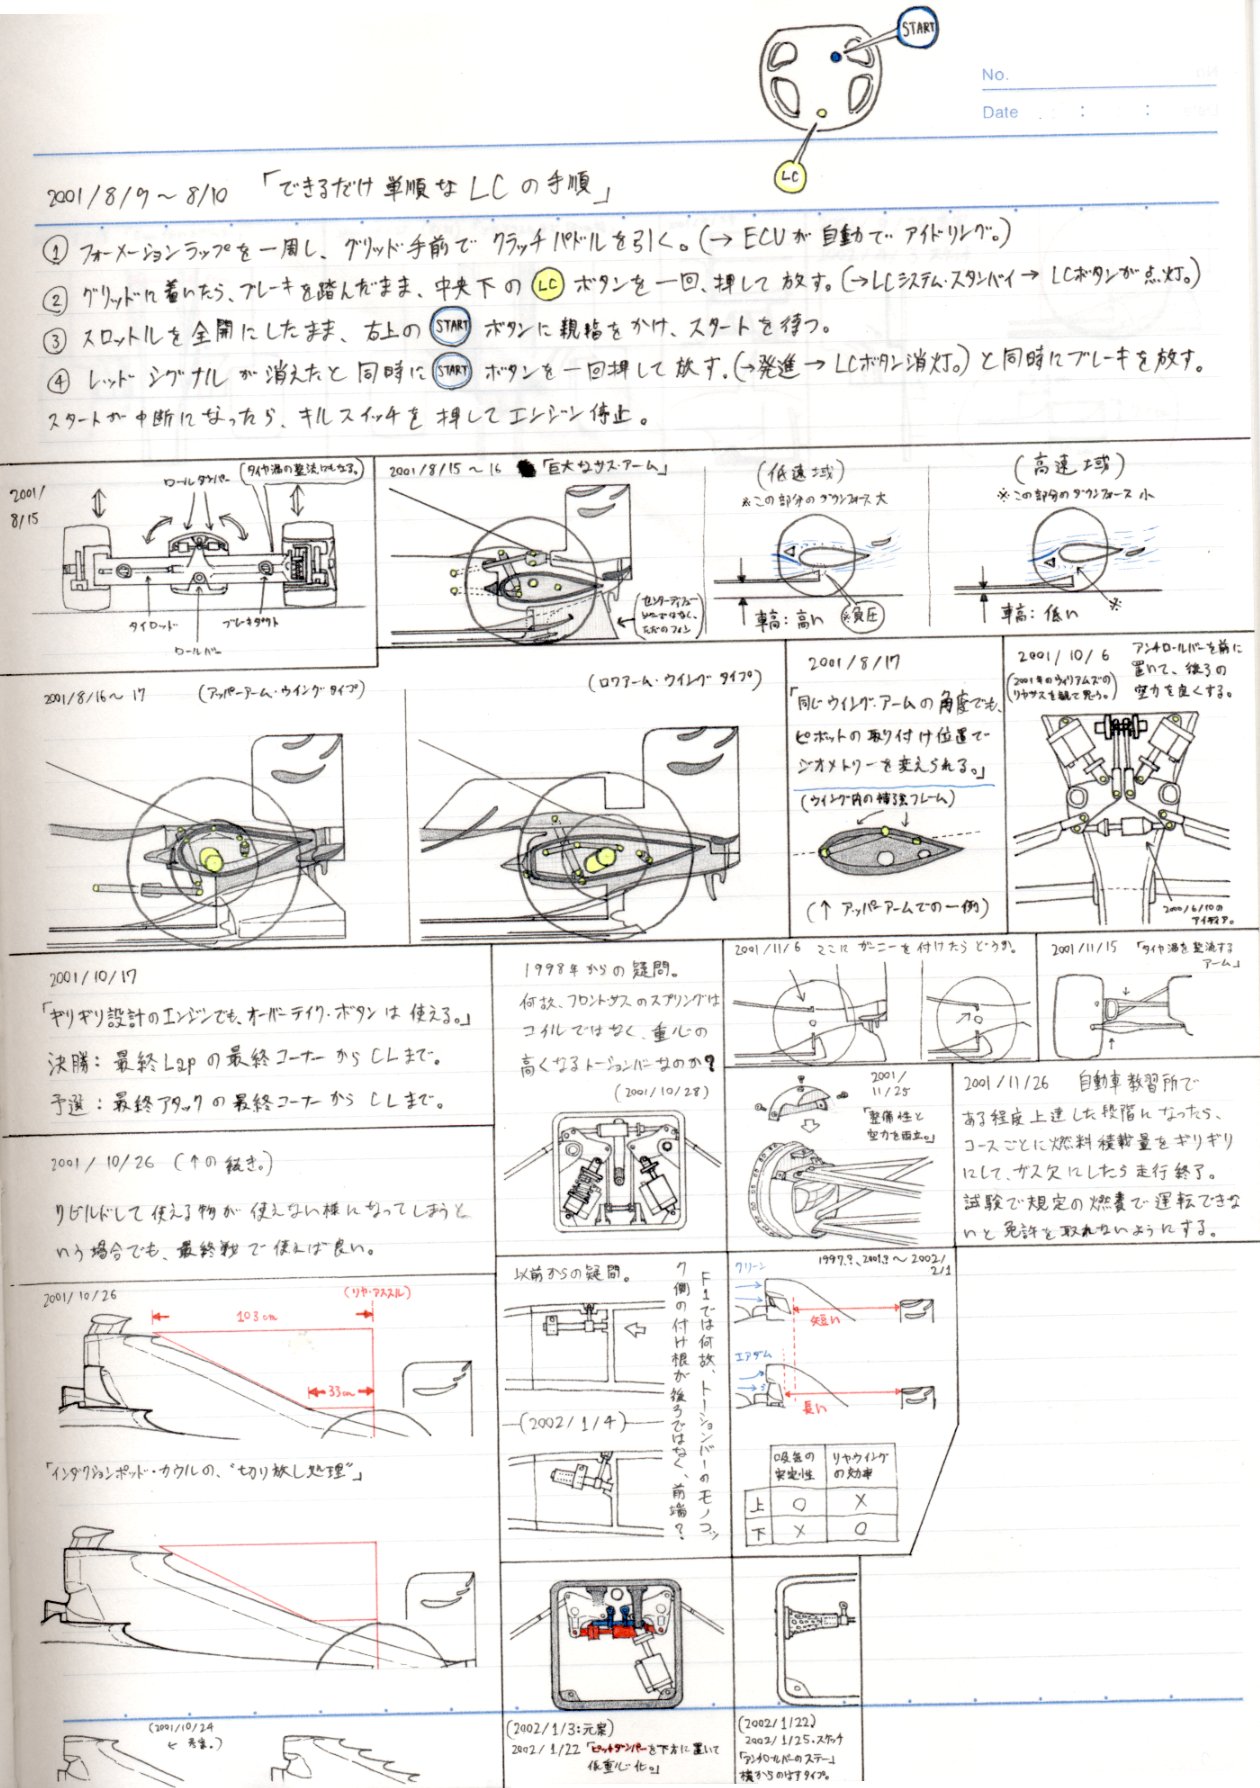 START
No.
Date : :
LC
2001/8/9～8/10 「できるだけ単順なLCの手順」
① フォーメーションラップを一周し、グリッド手前でクラッチパドルを引く。(→ECUが自動でアイドリング。)
② グリッドに着いたら、ブレーキを踏んだまま、中央下の LC ボタンを一回、押して放す。(→LCシステム・スタンバイ→LCボタンが点灯。)
③ スロットルを全開にしたまま、右上の START ボタンに親指をかけ、スタートを待つ。
④ レッドシグナルが消えたと同時に START ボタンを一回押して放す。(→発進→LCボタン消灯。)と同時にブレーキを放す。
スタートが中断になったら、キルスイッチを押してエンジン停止。
2001/
8/15
ロールダンパー
(タイヤ渦の整流にもなる。)
タイロッド
ブレーキダクト
ロールバー
2001/8/15～16 「巨大なサス・アーム」
(センターディフューザーではなく、ただのフィン)
(低速域)
※この部分のダウンフォース 大
車高：高い
※負圧
(高速域)
※この部分のダウンフォース 小
車高：低い
※
2001/8/16～17 (アッパーアーム・ウイングタイプ)
(ロワアーム・ウイングタイプ)
2001/8/17
「同じウイング・アームの角度でも、
ピボットの取り付け位置で
ジオメトリーを変えられる。」
(ウイング内の補強フレーム)
(↑ アッパーアームでの一例)
2001/10/6
(2001年のウィリアムズの
リヤサスを観て思う。)
アンチロールバーを前に
置いて、後ろの
空力を良くする。
2000/6/10の
アイディア。
2001/10/17
「ギリギリ設計のエンジンでも、オーバーテイク・ボタンは使える。」
決勝：最終Lapの最終コーナーからCLまで。
予選：最終アタックの最終コーナーからCLまで。
2001/10/26 (↑の続き。)
リビルドして使える物が使えない様になってしまうと
いう場合でも、最終戦で使えば良い。
1998年からの疑問。
何故、フロントサスのスプリングは
コイルではなく、重心の
高くなるトーションバーなのか?
(2001/10/28)
2001/11/6 ここにガーニーを付けたらどうか。
2001/11/15 「タイヤ渦を整流する
アーム」
2001/
11/25
「整備性と
空力を両立。」
2001/11/26 自動車教習所で
ある程度上達した段階になったら、
コースごとに燃料積載量をギリギリ
にして、ガス欠にしたら走行終了。
試験で規定の燃費で運転できな
いと免許を取れないようにする。
2001/10/26
(リヤ・アクスル)
103cm
33cm
「インダクションポッド・カウルの、"切り放し処理"」
(2001/10/24
考案。)
以前からの疑問。
F1では何故、トーションバーのモノコッ
ク側の付け根が後ろではなく、前端?
(2002/1/4)
1997.?、2001.?～2002/
2/1
クリーン
短い
エアダム
長い
吸気の
安定性
リヤウイング
の効率
上 ○ ×
下 × ○
(2002/1/3:元案)
2002/1/22「ピッチダンパーを下方に置いて
低重心化。」
(2002/1/22)
2002/1/25.スケッチ
「アンチロールバーのステー」
横からのばすタイプ。